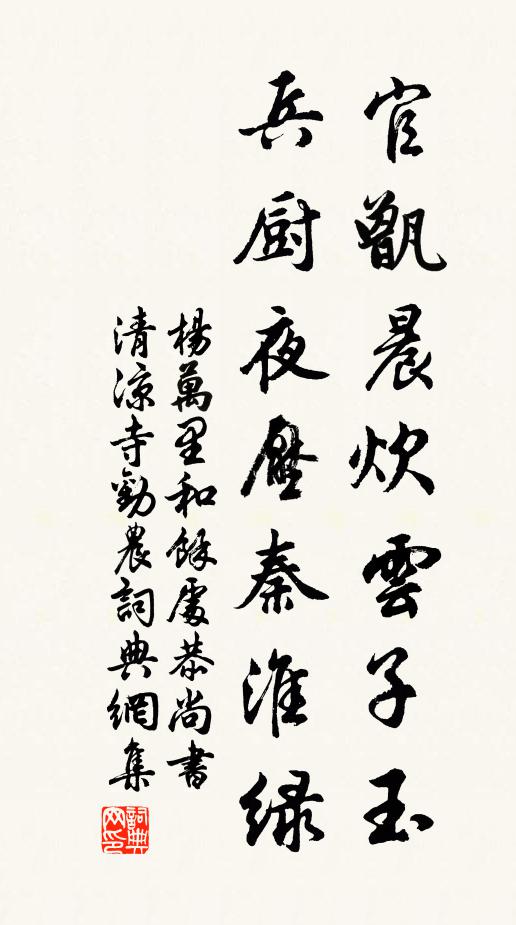 官甑晨炊雲子玉
兵厨夜壓秦淮緑
楊萬里和餘處恭尚書
清涼寺勸農詞典網集
詞典
网印